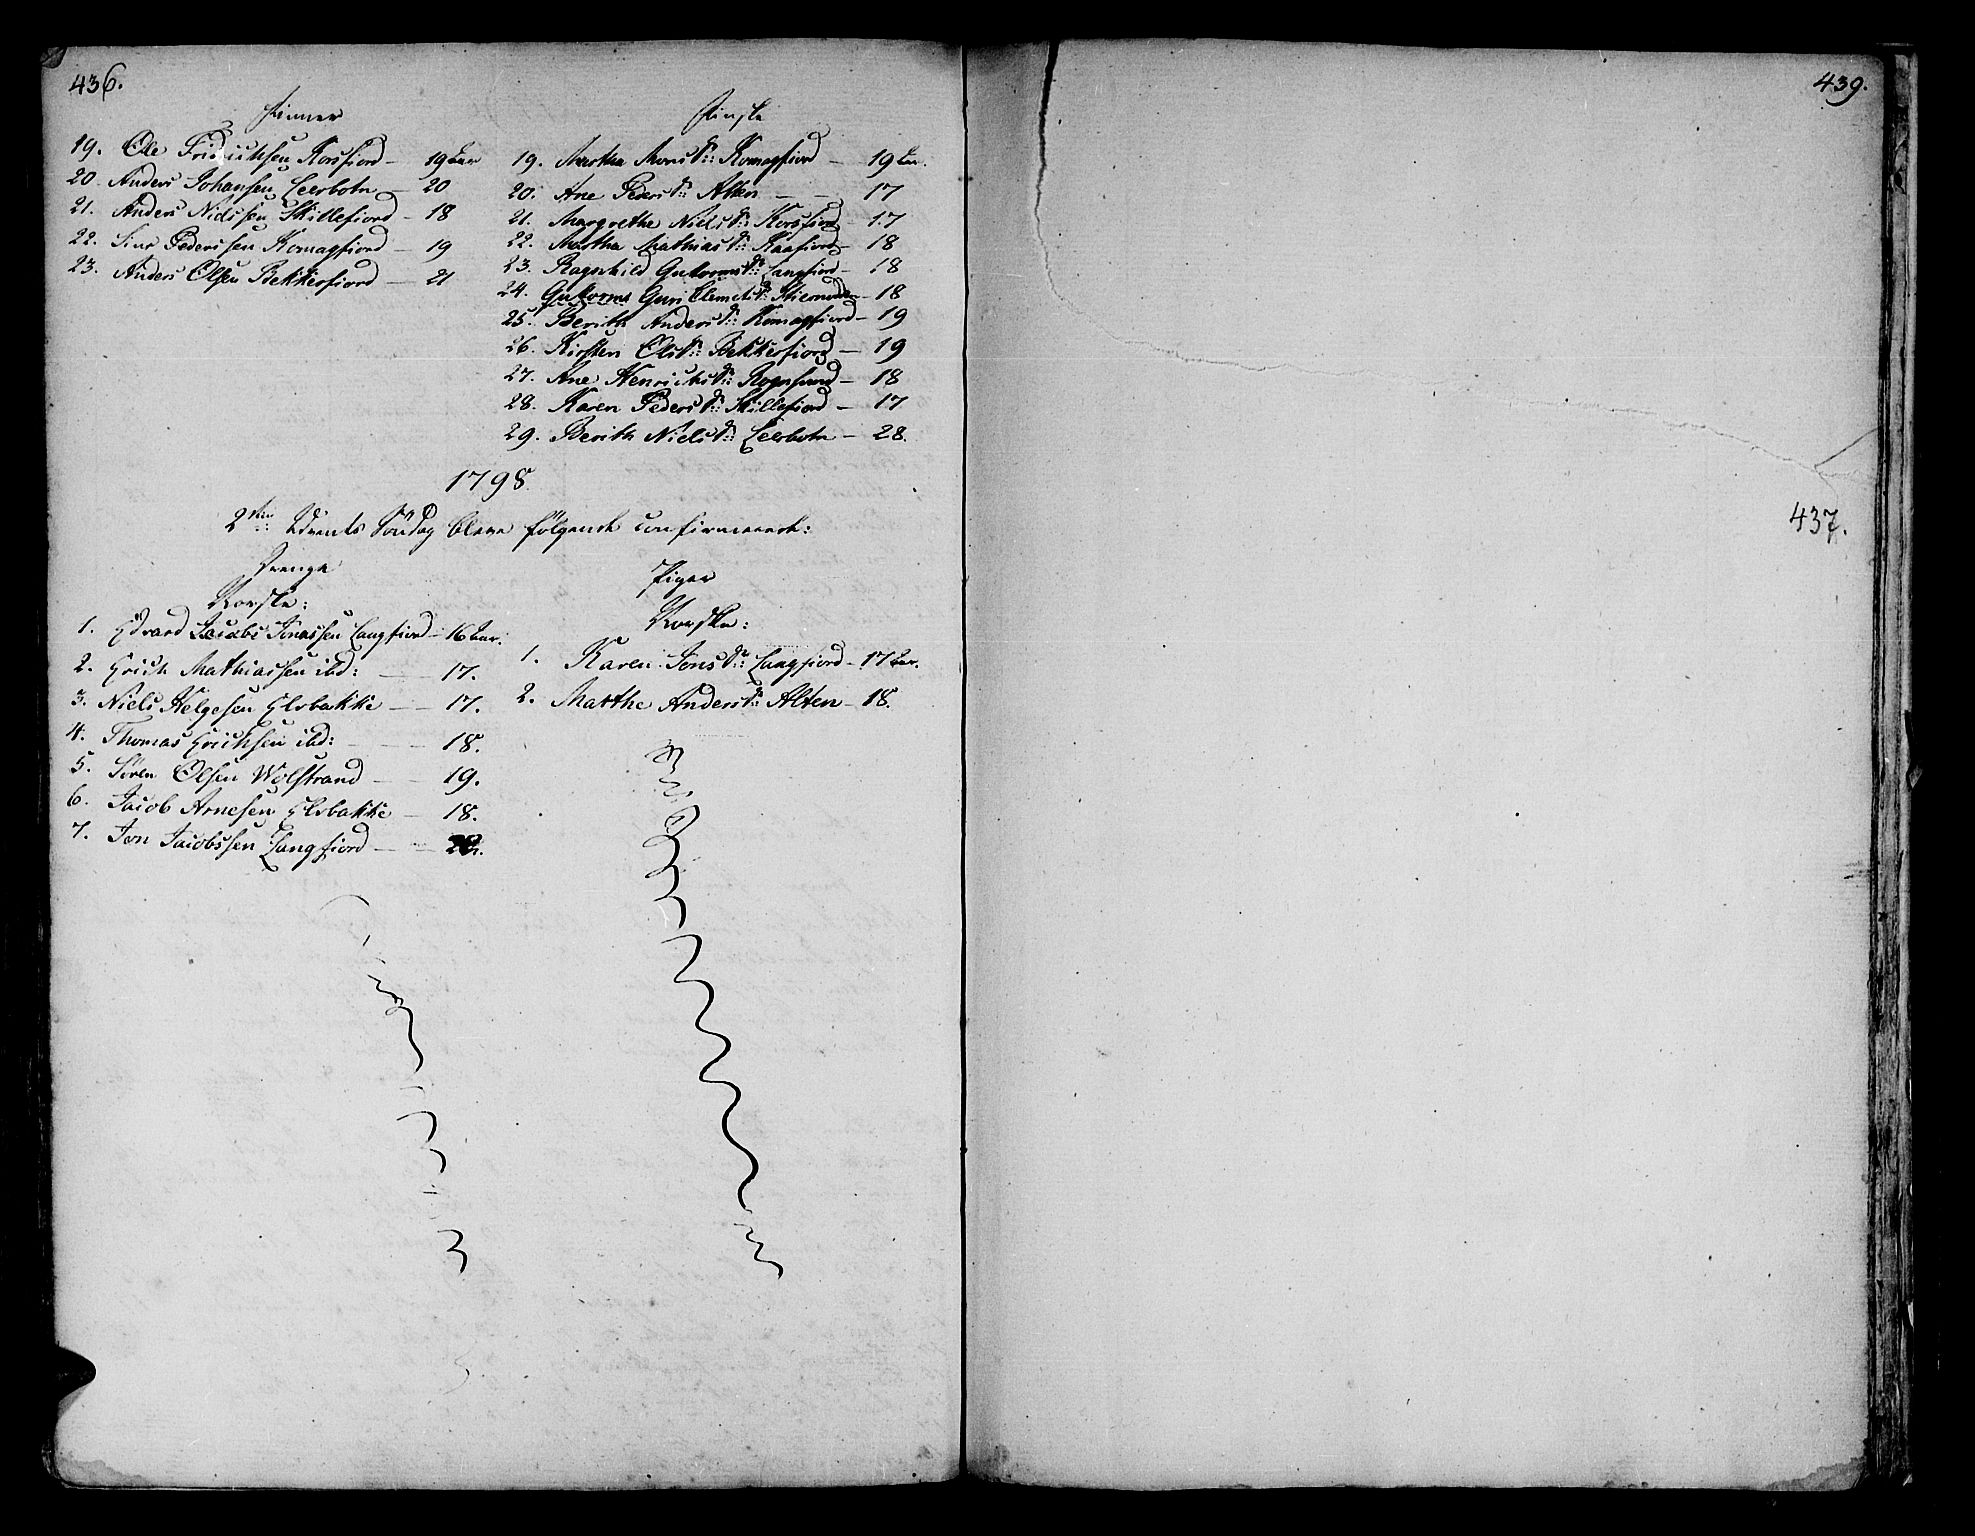 436.
Finner
19. Ole Fridrichsen Korsfiord – 19 Aar
20. Anders Johansen Leerbotn – 20
21. Anders Nielssen Skillefiord – 18
22. Siur Pederssen Komagfiord – 19
23. Anders Olsen Bekkerfiord – 21
Finske
19. Martha Monsdr: Komagfiord – 19 Aar.
20. Ane Pedersdr: Alten – – 17
21. Margrethe Nielsdr: Korsfiord – 17
22. Martha Mathiasdr: Kaafiord – 18
23. Ragnhild Guttormsdr: Langfiord – 18
24. Guttorms Guri Clemetsdr: – 18
25. Berith Andersdr: Komagfiord – 19
26. Kirsten Olsdr: Bekkerfiord – 19
27. Ane Henrichsdr: Rognsund – 18
28. Karen Pedersdr: Skillefiord – 17
29. Berith Nielsdr: Leerbotn – 28.
1798.
2den Advents Söndag bleve fölgende confirmerede:
Drenge
Norske:
1. Edvard Jacobs Jonassen Langfiord – 16 Aar.
2. Erich Mathiassen ibd: – 17.
3. Niels Helgesen Elvbakke – 17.
4. Thomas Erichsen ibd: – 18.
5. Sören Olsen Wolstrand – 19.
6. Jacob Arnesen Elvbakke – 18.
7. Jon Jacobssen Langfiord –
Piger
Norske:
1. Karen Jonsdr: Langfiord – 17 Aar.
2. Marthe Andersdr: Alten – 18.
439.
437.